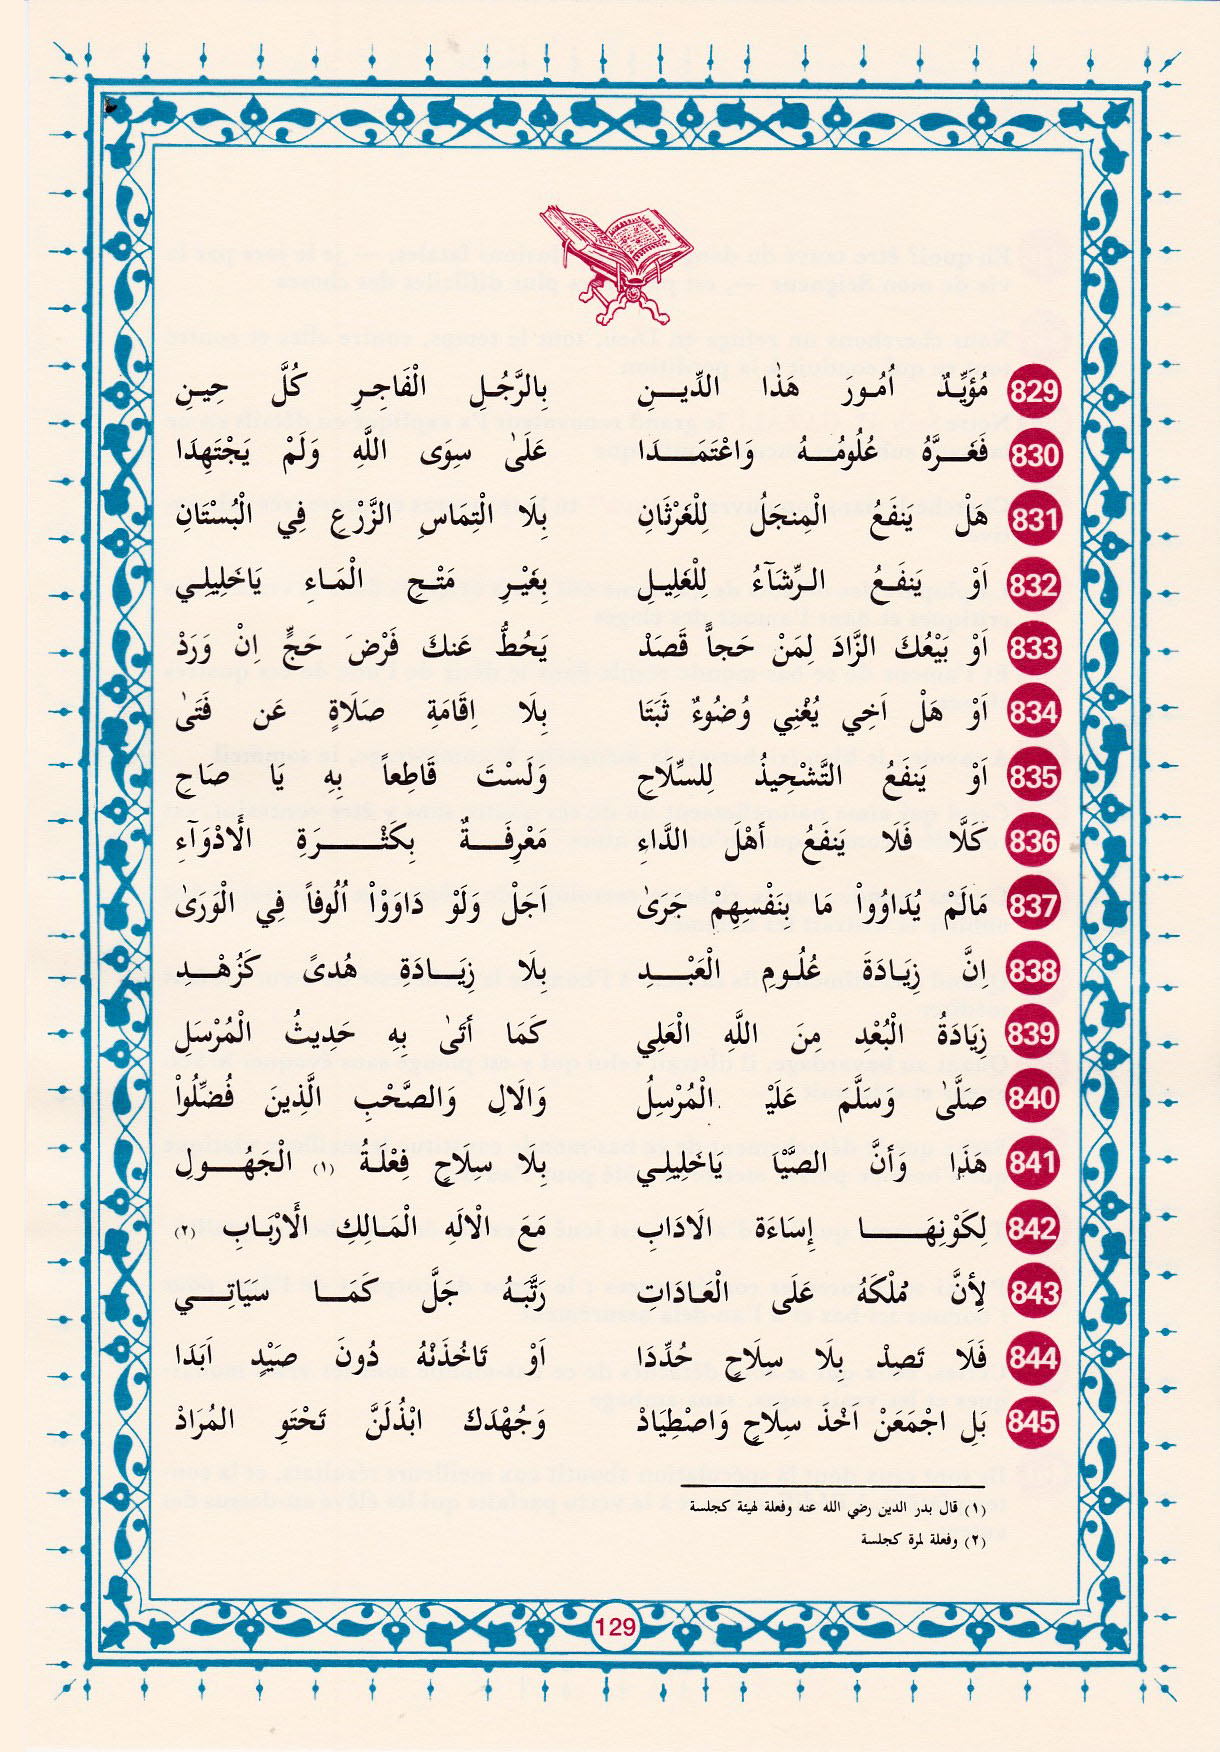 829 مُؤَيِّدٌ اُمُورَ هَذَا الدِّينِ بِالرَّجُلِ الْفَاجِرِ كُلَّ حِينِ
830 فَغَرَّهُ عُلُومُهُ وَاعْتَمَدَا عَلَىٰ سِوَى اللَّهِ وَلَمْ يَجْتَهِدَا
831 هَلْ يَنفَعُ الْمِنجَلُ لِلْغَرْثَانِ بِلَا الْتِمَاسِ الزَّرْعِ فِي الْبُسْتَانِ
832 اَوْ يَنفَعُ الرِّشَآءُ لِلْغَلِيلِ بِغَيْرِ مَتْحِ الْمَاءِ يَاخَلِيلِي
833 اَوْ بَيْعُكَ الزَّادَ لِمَنْ حَجاًّ قَصَدْ يَحُطُّ عَنكَ فَرْضَ حَجٍّ اِنْ وَرَدْ
834 اَوْ هَلْ اَخِي يُغْنِي وُضُوءٌ ثَبَتَا بِلَا اِقَامَةِ صَلَاةٍ عَن فَتَىٰ
835 اَوْ يَنفَعُ التَّشْحِيذُ لِلسِّلَاحِ وَلَسْتَ قَاطِعاً بِهِ يَا صَاحِ
836 كَلَّا فَلَا يَنفَعُ أَهْلَ الدَّاءِ مَعْرِفَةٌ بِكَثْرَةِ الَادْوَآءِ
837 مَالَمْ يُدَاوُواْ مَا بِنَفْسِهِمْ جَرَىٰ اَجَلْ وَلَوْ دَاوَوْاْ اُلُوفاً فِي الْوَرَىٰ
838 اِنَّ زِيَادَةَ عُلُومِ الْعَبْدِ بِلَا زِيَادَةِ هُدىً كَزُهْدِ
839 زِيَادَةُ الْبُعْدِ مِنَ اللَّهِ الْعَلِي كَمَا أَتَىٰ بِهِ حَدِيثُ الْمُرْسَلِ
840 صَلَّىٰ وَسَلَّمَ عَلَيْهِ الْمُرْسِلُ وَالَالِ وَالصَّحْبِ الَّذِينَ فُضِّلُواْ
841 هَذَا وَأَنَّ الصَّيْدَ يَاخَلِيلِي بِلَا سِلَاحٍ فِعْلَةُ (١) الْجَهُولِ
842 لِكَوْنِهَا إِسَاءَة الَادَابِ مَعَ الْالَهِ الْمَالِكِ الَارْبَابِ (٢)
843 لِأَنَّ مُلْكَهُ عَلَى الْعَادَاتِ رَتَّبَهُ جَلَّ كَمَا سَيَاتِي
844 فَلَا تَصِدْ بِلَا سِلَاحٍ حُدِّدَا اَوْ تَاخُذَنْهُ دُونَ صَيْدٍ اَبَدَا
845 بَلِ اجْمَعَنْ اَخْذَ سِلَاحٍ وَاصْطِيَادْ وَجُهْدَكَ ابْذُلَنَّ تَحْتَوِ المُرَادْ
(١) قال بدر الدين رضي الله عنه وفعلة لهيئة كجلسة
(٢) وفعلة لمرة كجلسة
129